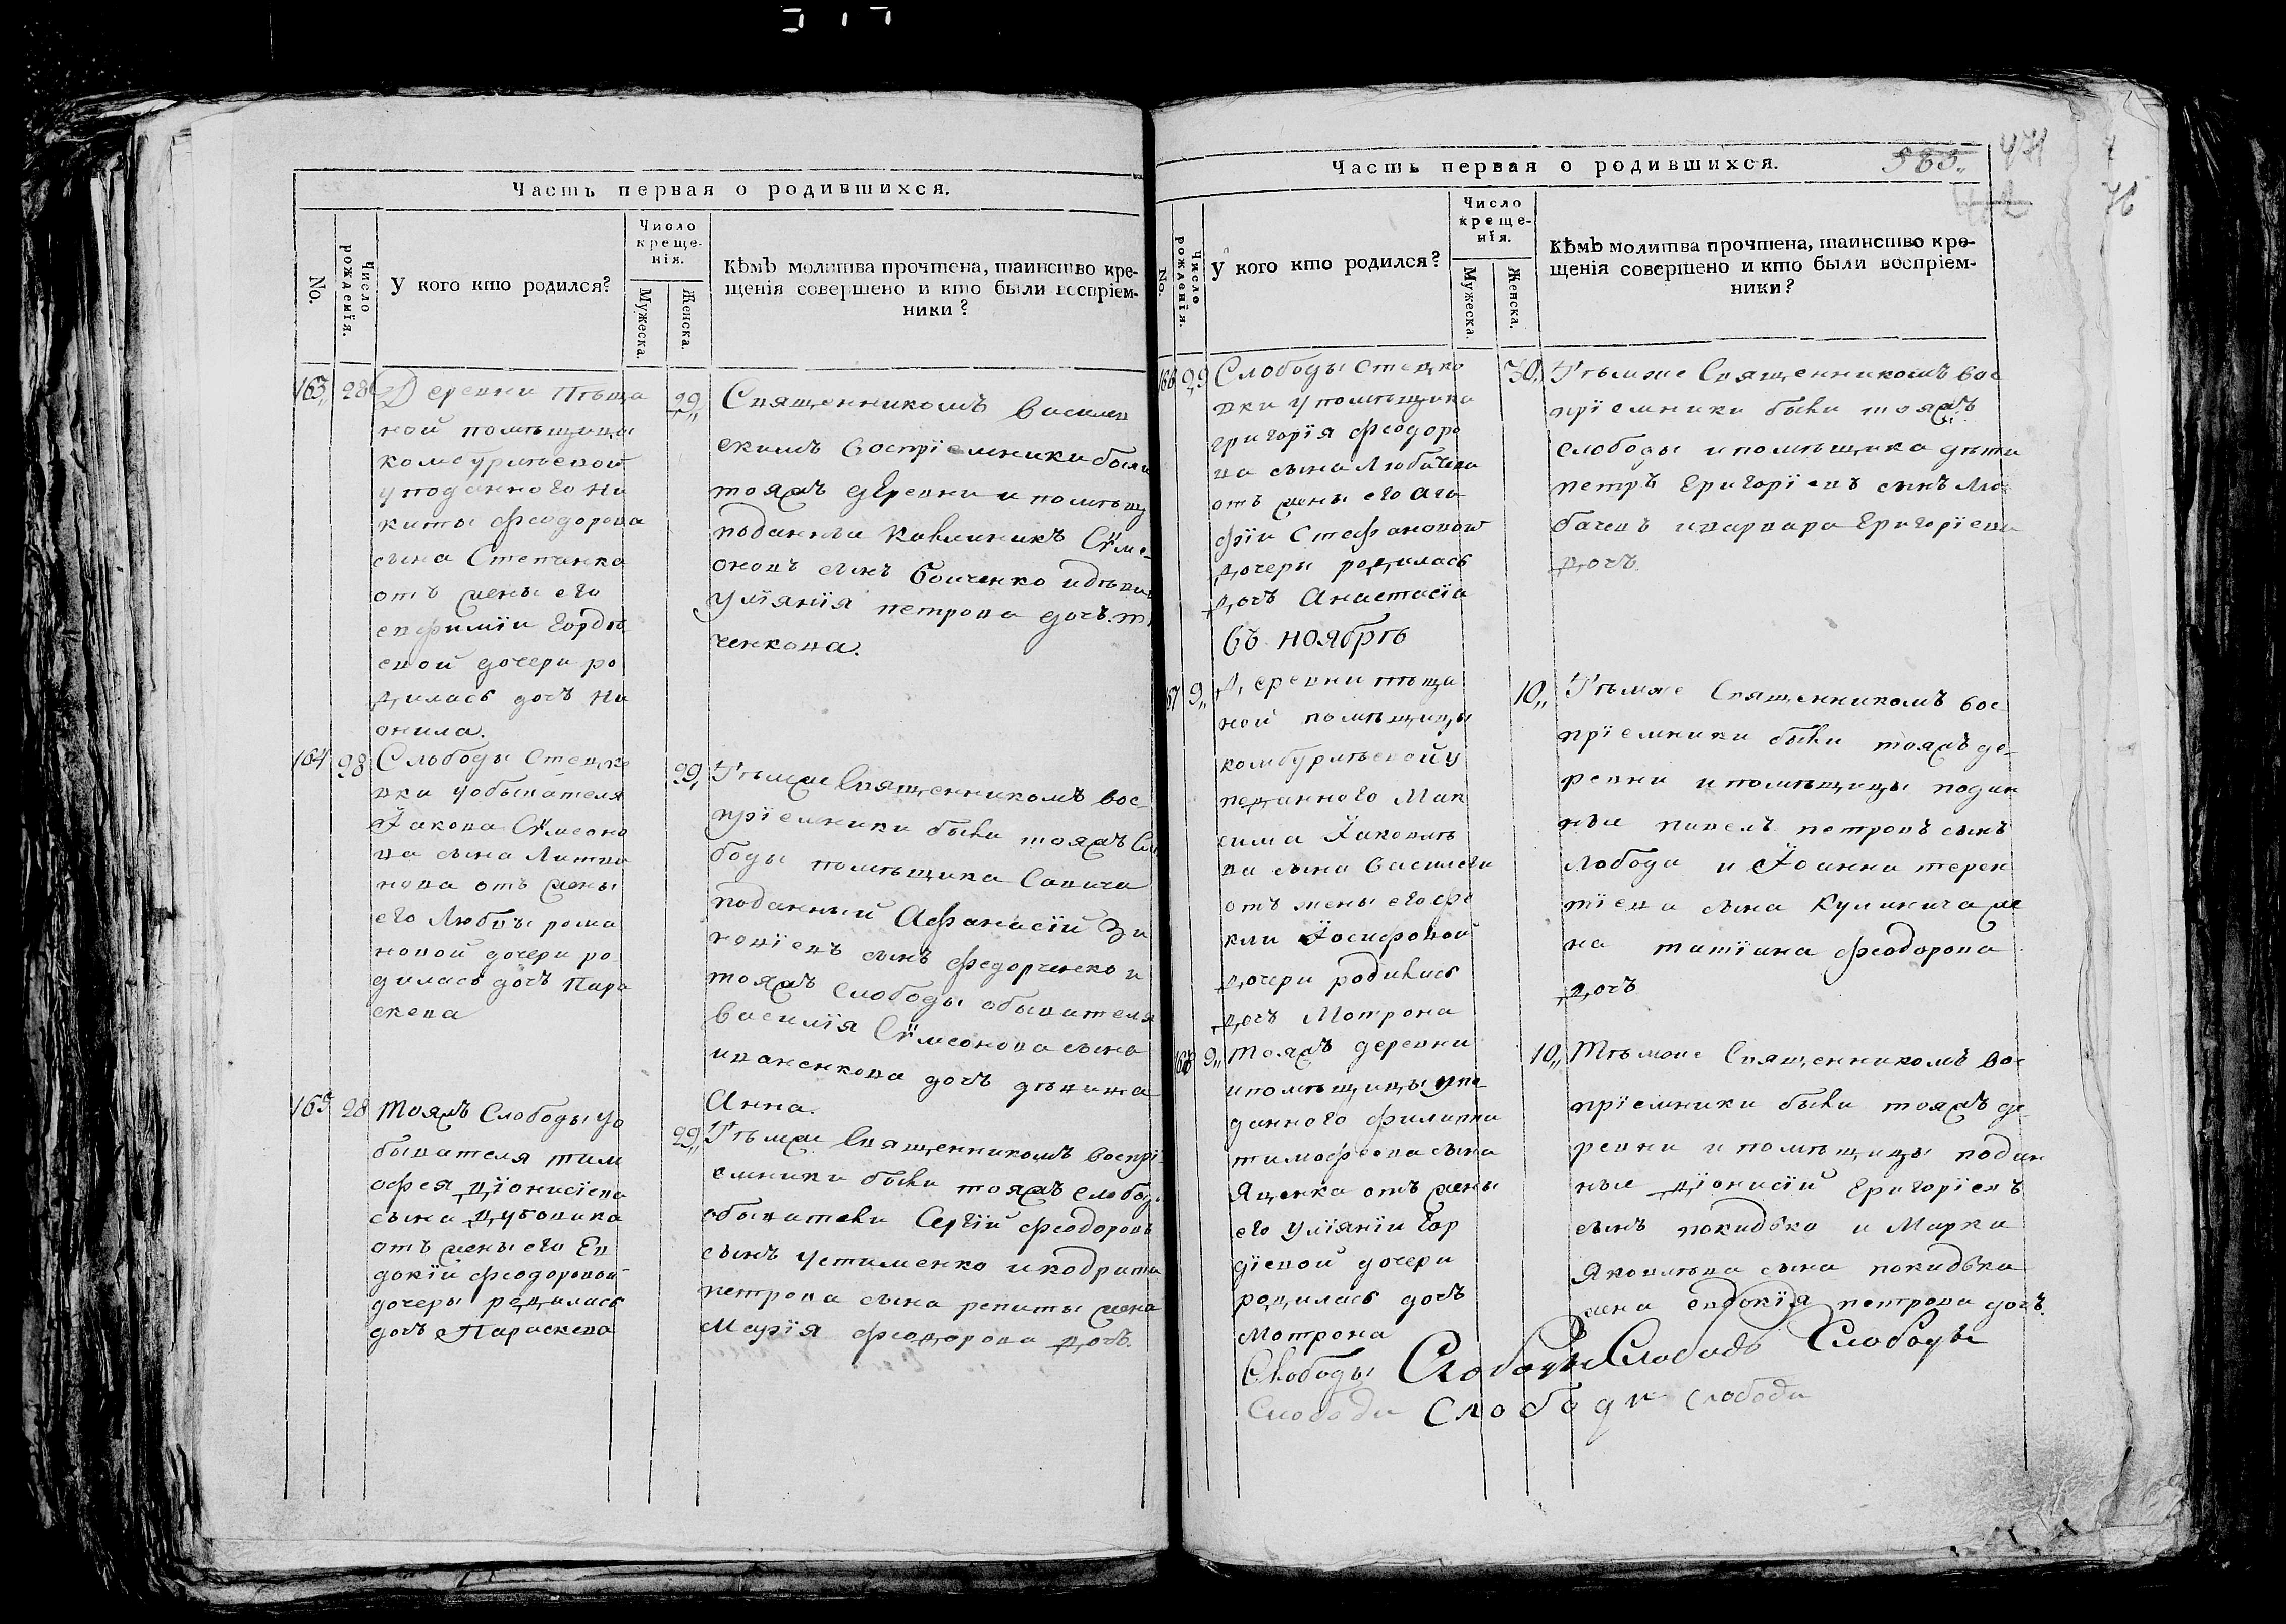 Часть первая о родившихся.
No.
Число рожденїя.
У кого кто родился?
Число
креще-
нїя.
Мужеска.
Женска.
Кѣмъ молитва прочтена, таинство кре-
щенїя совершено и кто были воспрїем-
ники?
163 28 Деревни Пѣща
ной помѣщицы
комбурлѣевой
у поданного Ни
киты Феодорова
сына Степанка
отъ жены его
евфимїи Гордѣ
евой дочери ро
дилась дочъ Не
онила.
29 Священникомъ Василев
скимъ Воспрїемники были
тояжъ деревни и помѣщ
поданныи Савѵ
оновъ сынъ Боиченко идѣвка
улїянїя петрова дочъ
ченкова.
164 28 Слободы Стецко
вки уобывателя
Їакова Сѷмеоно
ва сына Литви
нова отъ жены
его Любвы рома
новой дочери ро
дилась дочъ Пара
скева
29 Тѣмже Священникомъ вос
прїемники были тояжъ Сло
боды помѣщика Савича
поданный Афанасїй Зи
новїевъ сынъ Федорченко и
тояжъ слободы обывателя
Василїя Сѷмеонова сына
иваненкова дочъ дѣвица
Анна.
165 28 Тояжъ Слободы уо
бывателя тим
офея дїонисїева
сына дубовика
отъ жены его Ев
докїи феодоровой
дочеры родилась
дочъ Параскева
29 Тѣмже Священникомъ воспрї
емники были тояжъ слобод
обыватели Сергїй феодоровъ
сынъ Устименко икодрата
петрова сына репиты жена
Марїя феодорова дочъ.
Часть первая о родившихся.
585. 471
76
No.
Число рожденїя.
У кого кто родился?
Число
креще-
нїя.
Мужеска.
Женска.
Кѣмъ молитва прочтена, таинство кре-
щенїя совершено и кто были воспрїем-
ники?
166 29 Слободы Стецко
вки у помѣщика
григорїя феодоро
ва сына Любачева
отъ жены его Ага
фїи Стефановой
дочеры родилась
дочъ Анастасїа
30 Тѣмже Священникомъ вос
прїемники были тояжъ
слободы и помѣщика дѣти
петръ Григорїевъ сынъ Лю
бачевъ иварвара Григорїева
дочъ
Въ ноябрѣ
167 9 Деревни пѣща
ной помѣщицы
комбурлѣевой у
поданного Мак
сима Їаковлѣ
ва сына Василега
отъ жены его фе
кли Їосифовой
дочери родилась
дочъ Мотрона
10 Тѣмже Священникомъ вос
прїемники были тояжъ де
ревни и помѣщицы подан
ные павелъ петровъ сынъ
лобода и Їоанна терен
тїева сына Кулинича же
на татїана феодорова
дочъ
168 9 Тояжъ деревни
ипомѣщицы упо
данного филиппа
тимофеова сына
Яценка отъ жены
его улїянїи Гор
дїевой дочери
родилась дочъ
Мотрона
10 Тѣмже Священникомъ вос
прїемники были тояжъ де
ревни и помѣщицы подан
ные дїонисїй Григорїевъ
сынъ покидько и Марка
Яковлѣва сына покидька
жена евдокїя петрова дочъ.
Слободы Слободы Слободъ Слободы
Слободи Слободи слободи